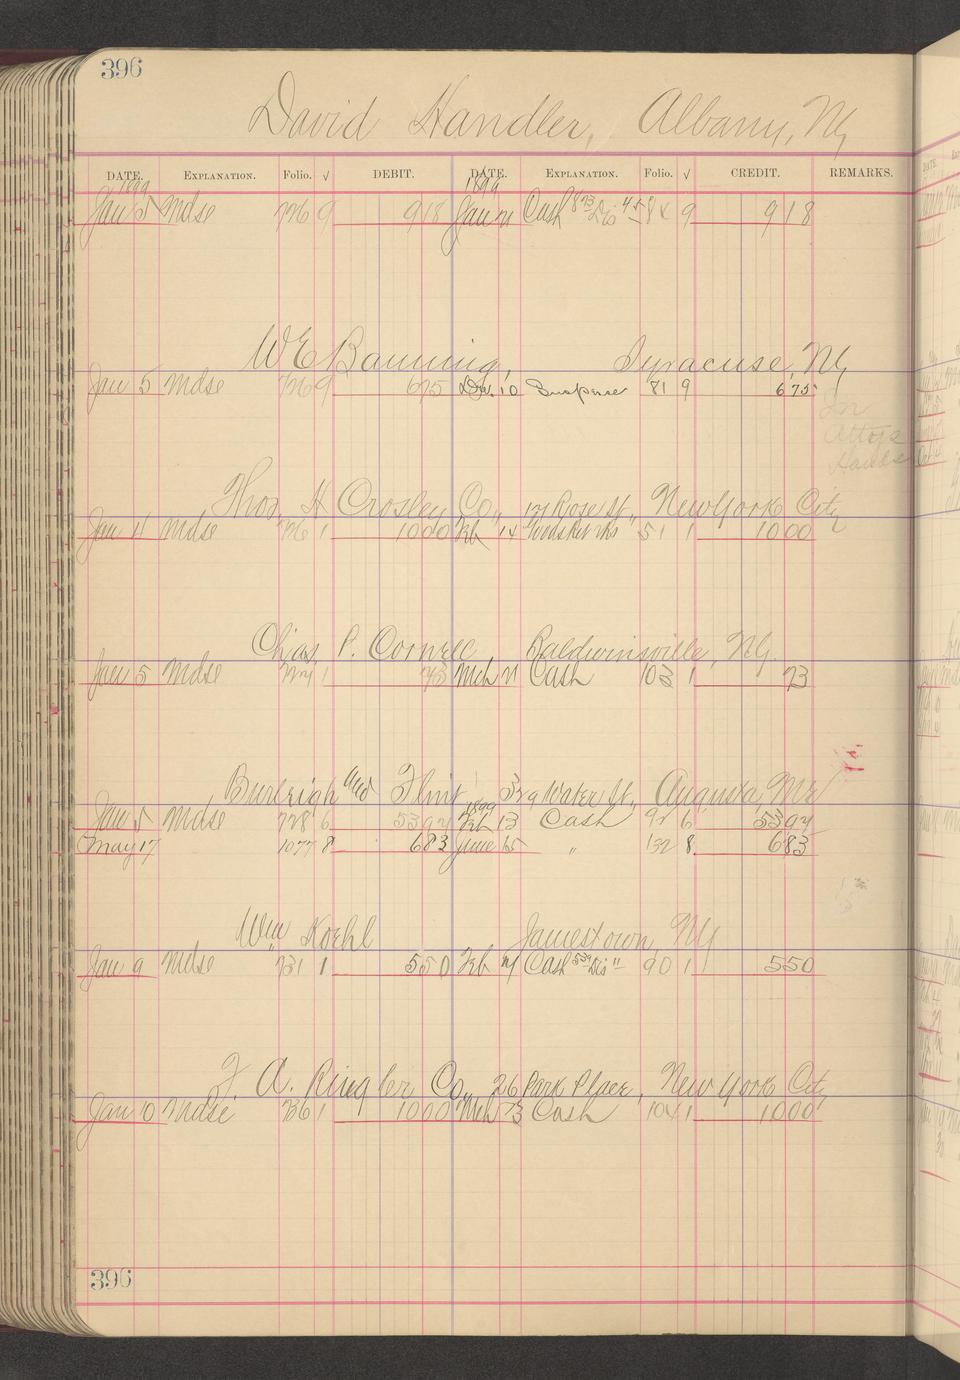 396
David Handler, Albany, Ny
DATE. EXPLANATION. Folio. √ DEBIT. DATE. EXPLANATION. Folio. √ CREDIT. REMARKS.
1899 1899
Jan 5 Mdse 726 9 918 Jan 21 Cash 873 Dis 45 84 9 918
W E Banning, Syracuse, Ny
Jan 5 Mdse 726 9 675 10 Suspense 81 9 675
In
Attoys
Hands
Thos. H Crosley Co., Rose St., New York City
Jan 4 Mdse 726 1 1000 Feb 14 51 1 1000
Chas. P. Cornell, Baldwinsville, Ny.
Jan 5 Mdse 1 73 Mch 21 Cash 103 1 73
Burleigh and Flint, 329 Water St., Augusta, Me
1899
Jan 5 Mdse 728 6 5394 Feb 13 Cash 92 6 5394
May 17 1077 8 683 June 15 " 132 8 683
Wm Koehl Jamestown, Ny
Jan 9 Mdse 731 1 550 Feb Cash Dis 90 1 550
F. A. Ringler Co., 26 Park Place, New York City
Jan 10 Mdse 736 1 1000 Mch Cash 104 1 1000
396